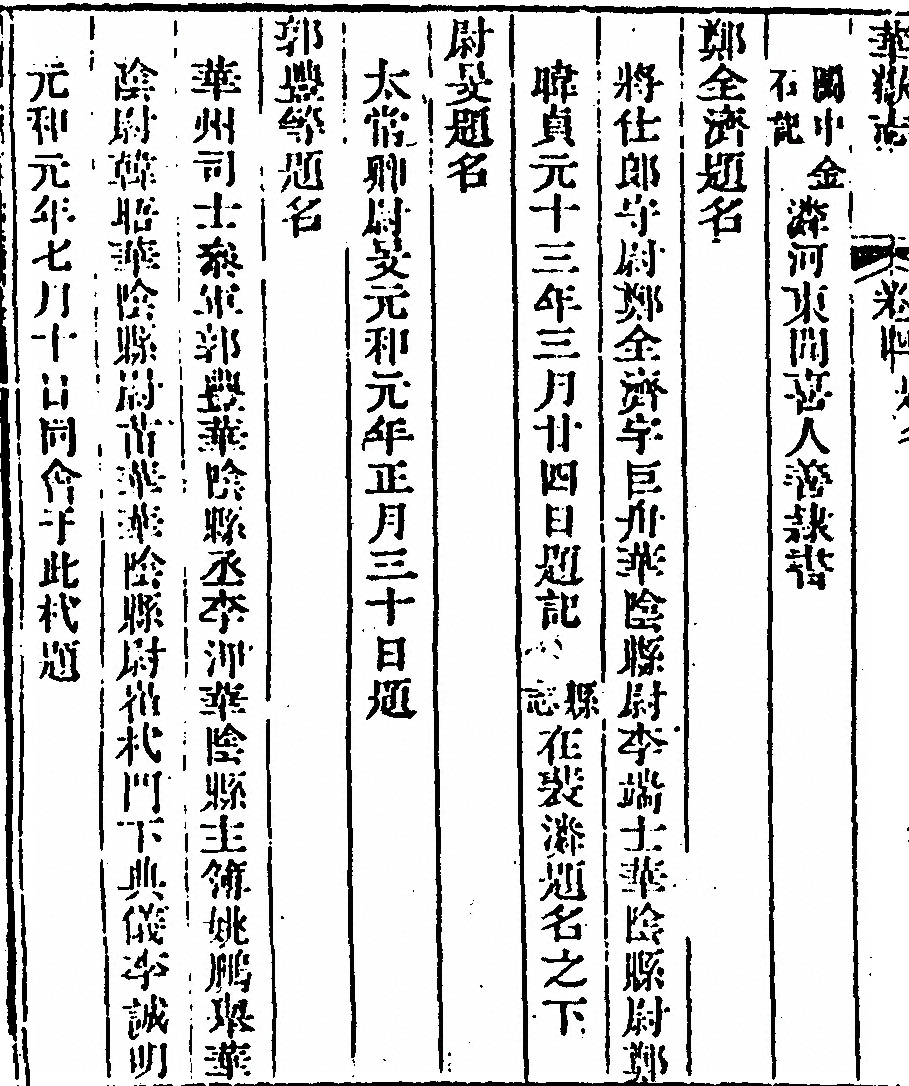 華嶽志 卷四
關中金石記 濴河東聞喜人善隸書
鄭全濟題名
將仕郎守尉鄭全濟字巨舟華陰縣尉李端士華陰縣尉鄭
暐貞元十三年三月廿四日題記 縣志 在裴濴題名之下
尉旻題名
太常卿尉旻元和元年正月三十日題
郭豐等題名
華州司士參軍郭豐華陰縣丞李沖華陰縣主簿姚鵬舉華
陰尉韓晤華陰縣尉苗華華陰縣尉崔栻門下典儀李誠明
元和元年七月十日同會于此栻題